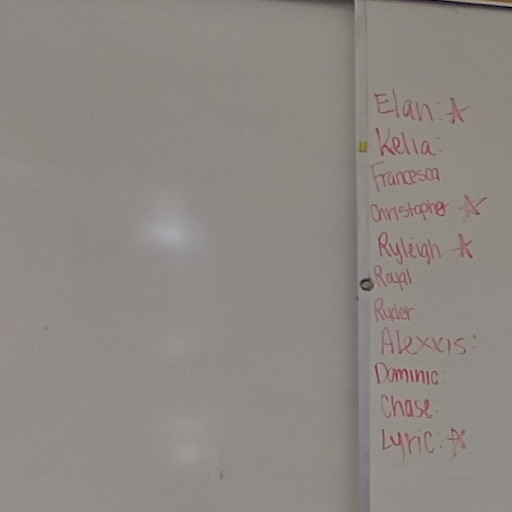 Elan: ☆
Kelia:
Francesca
Christopher ☆
Ryleigh ☆
Royal
Ryder
Alexxis:
Dominic
Chase
Lyric: ☆